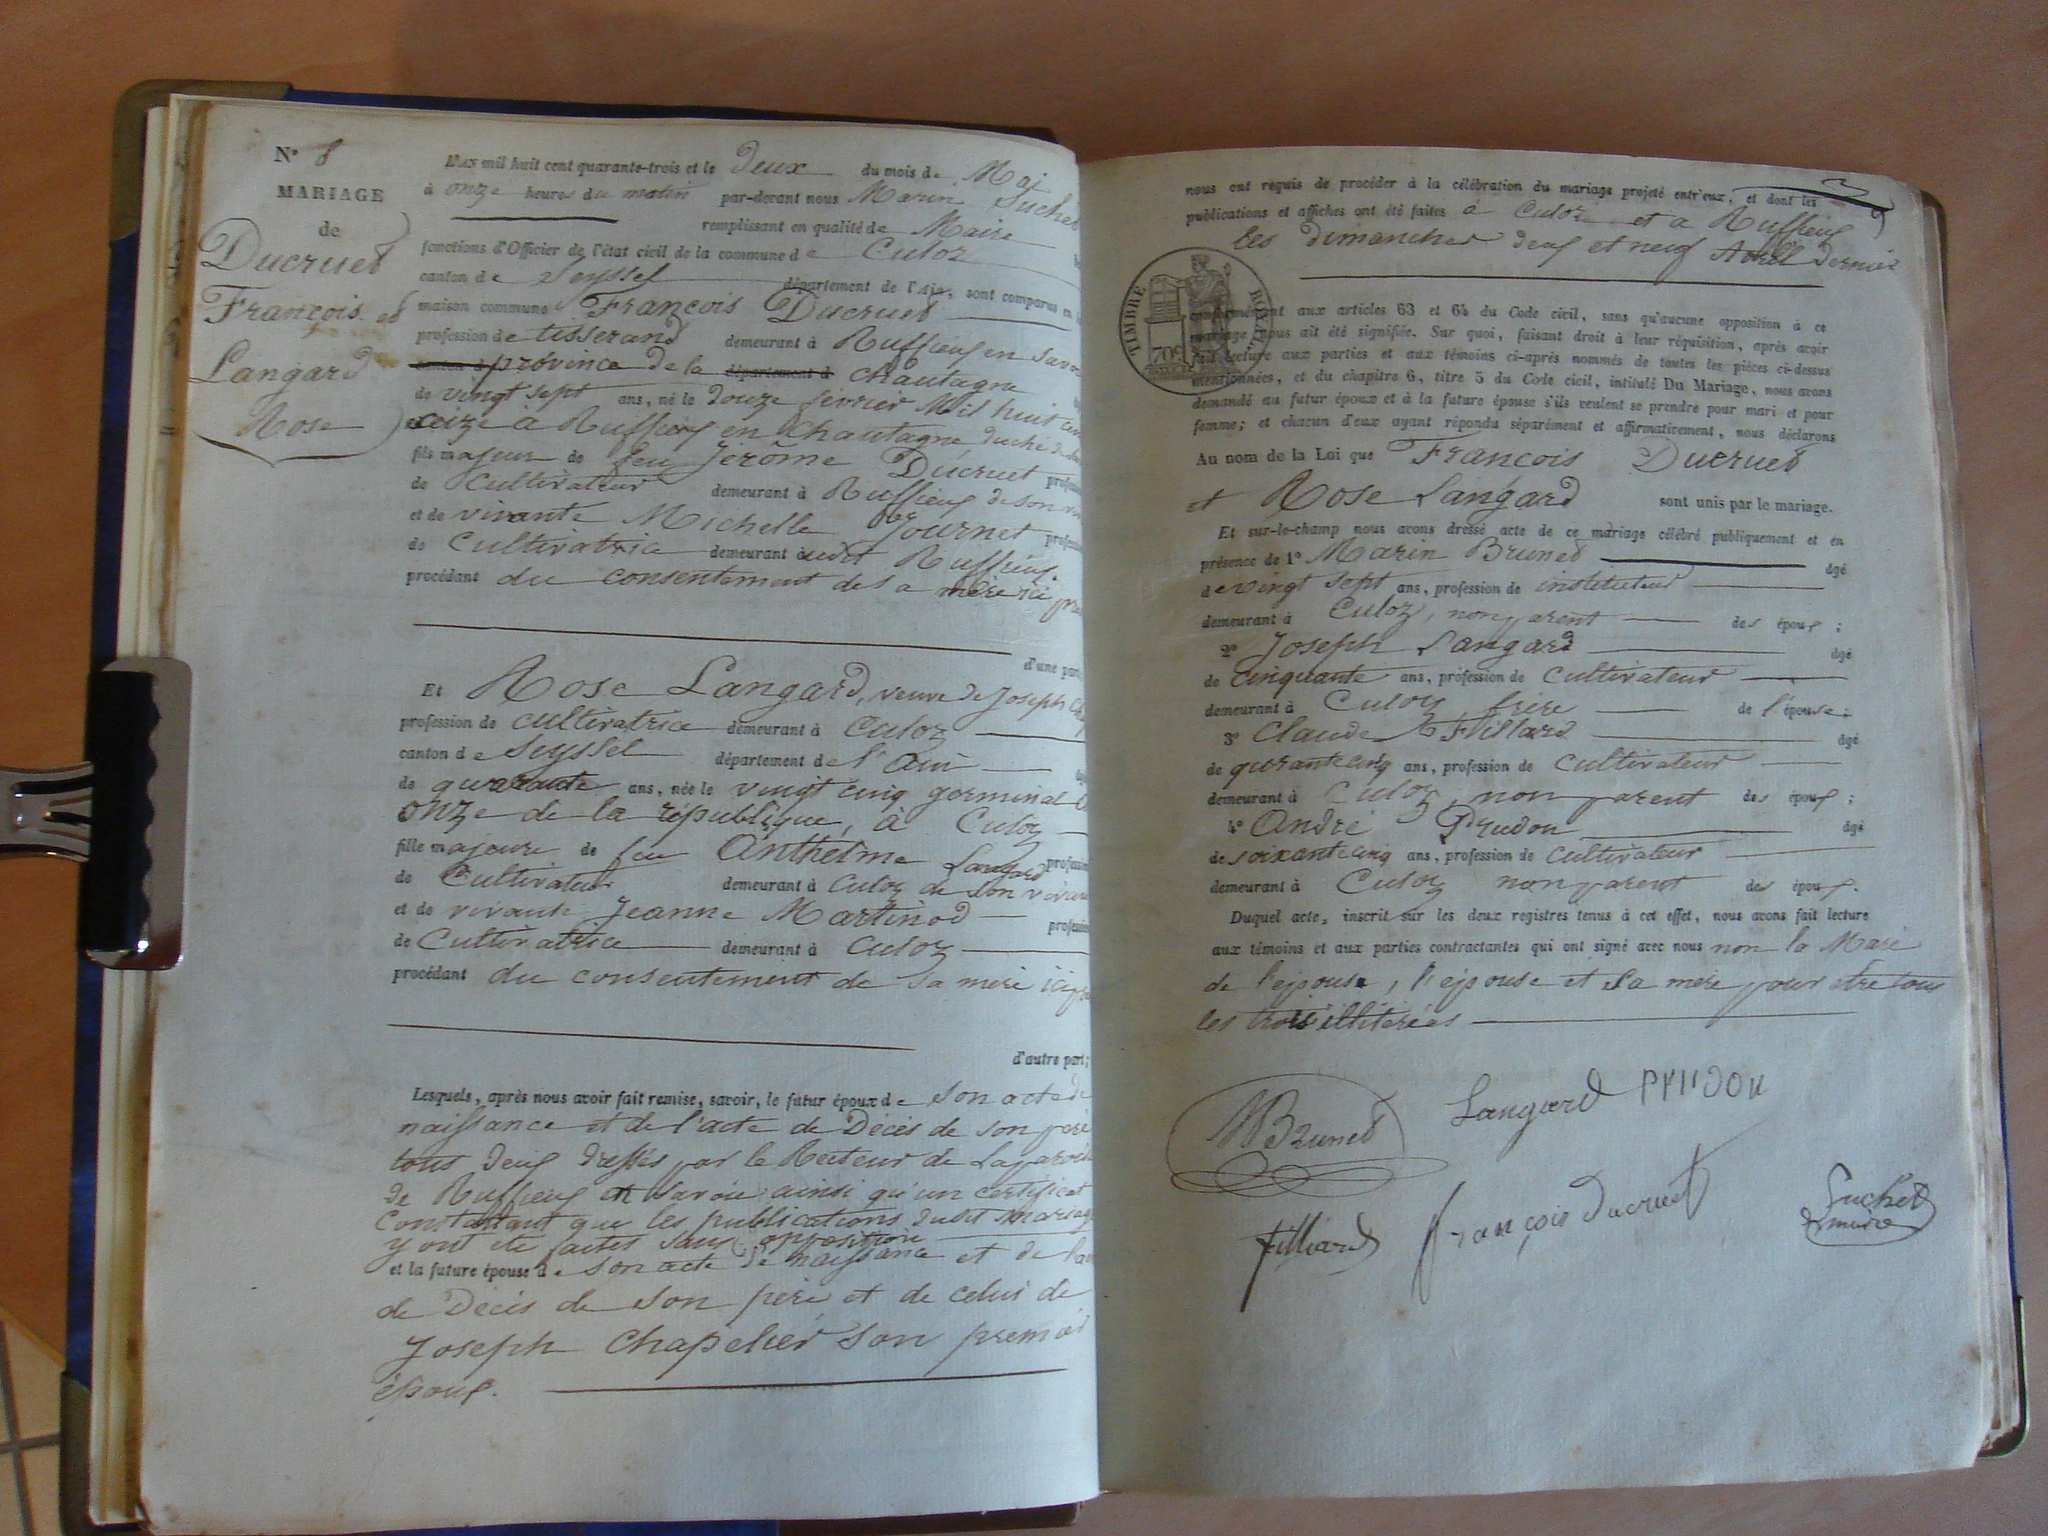 N° 8
MARIAGE
de
Ducruet
François et
Langard
Rose
L'AN mil huit cent quarante-trois et le deux du mois de Mai
à onze heures du matin par-devant nous Marin Suchet
remplissant en qualité de Maire
fonctions d'Officier de l'état civil de la commune de Culoz
canton de Seyssel département de l'Ain, sont comparus en
maison commune François Ducruet
profession de tisserand demeurant à Ruffieux en Savoie
province de la département d Chautagne
de vingt sept ans, né le douze février Mil huit cent
seize à Ruffieux en Chautagne duché de
fils majeur de feu Jerôme Ducruet
de Cultivateur demeurant à Ruffieux de son
et de vivante Michelle Journet
de Cultivatrice demeurant audit Ruffieux
procédant du consentement de sa mère ici
d'une part
Et Rose Langard, veuve de Joseph
profession de cultivatrice demeurant à Culoz
canton de Seyssel département de l'Ain
de quarante ans, née le vingt cinq germinal
onze de la république, à Culoz
fille majeure de feu Anthelme Langard
de Cultivateur demeurant à Culoz de son vivant
et de vivante Jeanne Martinod
de Cultivatrice demeurant à Culoz
procédant du consentement de sa mère ici
d'autre part;
Lesquels, après nous avoir fait remise, savoir, le futur époux de son acte de
naissance et de l'acte de Décès de son père
tous deux dressés par le Recteur de La paroisse
de Ruffieux en Savoie ainsi qu'un certificat
Constatant que les publications dudit mariage
y ont été faites sans opposition
et la future épouse de son acte de naissance et de
de Décès de son père et de celui de
Joseph Chapelier son premier
époux.
nous ont requis de procéder à la célébration du mariage projeté entr'eux, et dont les
publications et affiches ont été faites à Culoz et a Ruffieux
les dimanches deux et neuf Avril dernier
TIMBRE ROYAL
conformément aux articles 63 et 64 du Code civil, sans qu'aucune opposition à ce
mariage nous ait été signifiée. Sur quoi, faisant droit à leur réquisition, après avoir
fait lecture aux parties et aux témoins ci-après nommés de toutes les pièces ci-dessus
mentionnées, et du chapitre 6, titre 5 du Code civil, intitulé Du Mariage, nous avons
demandé au futur époux et à la future épouse s'ils veulent se prendre pour mari et pour
femme; et chacun d'eux ayant répondu séparément et affirmativement, nous déclarons
Au nom de la Loi que François Ducruet
et Rose Langard sont unis par le mariage.
Et sur-le-champ nous avons dressé acte de ce mariage célébré publiquement et en
présence de 1° Marin Brunet âgé
de vingt sept ans, profession de instituteur
demeurant à Culoz, non parent des époux;
2° Joseph Langard âgé
de cinquante ans, profession de Cultivateur
demeurant à Culoz frère de l'épouse;
3° Claude Filliard âgé
de quarantecinq ans, profession de cultivateur
demeurant à Culoz, non parent des époux;
4° André Prudon âgé
de soixantecinq ans, profession de cultivateur
demeurant à Culoz non parent des époux.
Duquel acte, inscrit sur les deux registres tenus à cet effet, nous avons fait lecture
aux témoins et aux parties contractantes qui ont signé avec nous non la Mère
de l'epoux, l'epouse et sa mere pour etre tous
les trois illiterées
MBrunet Langard PRUDON
Filliard françois Ducruet Suchet
maire